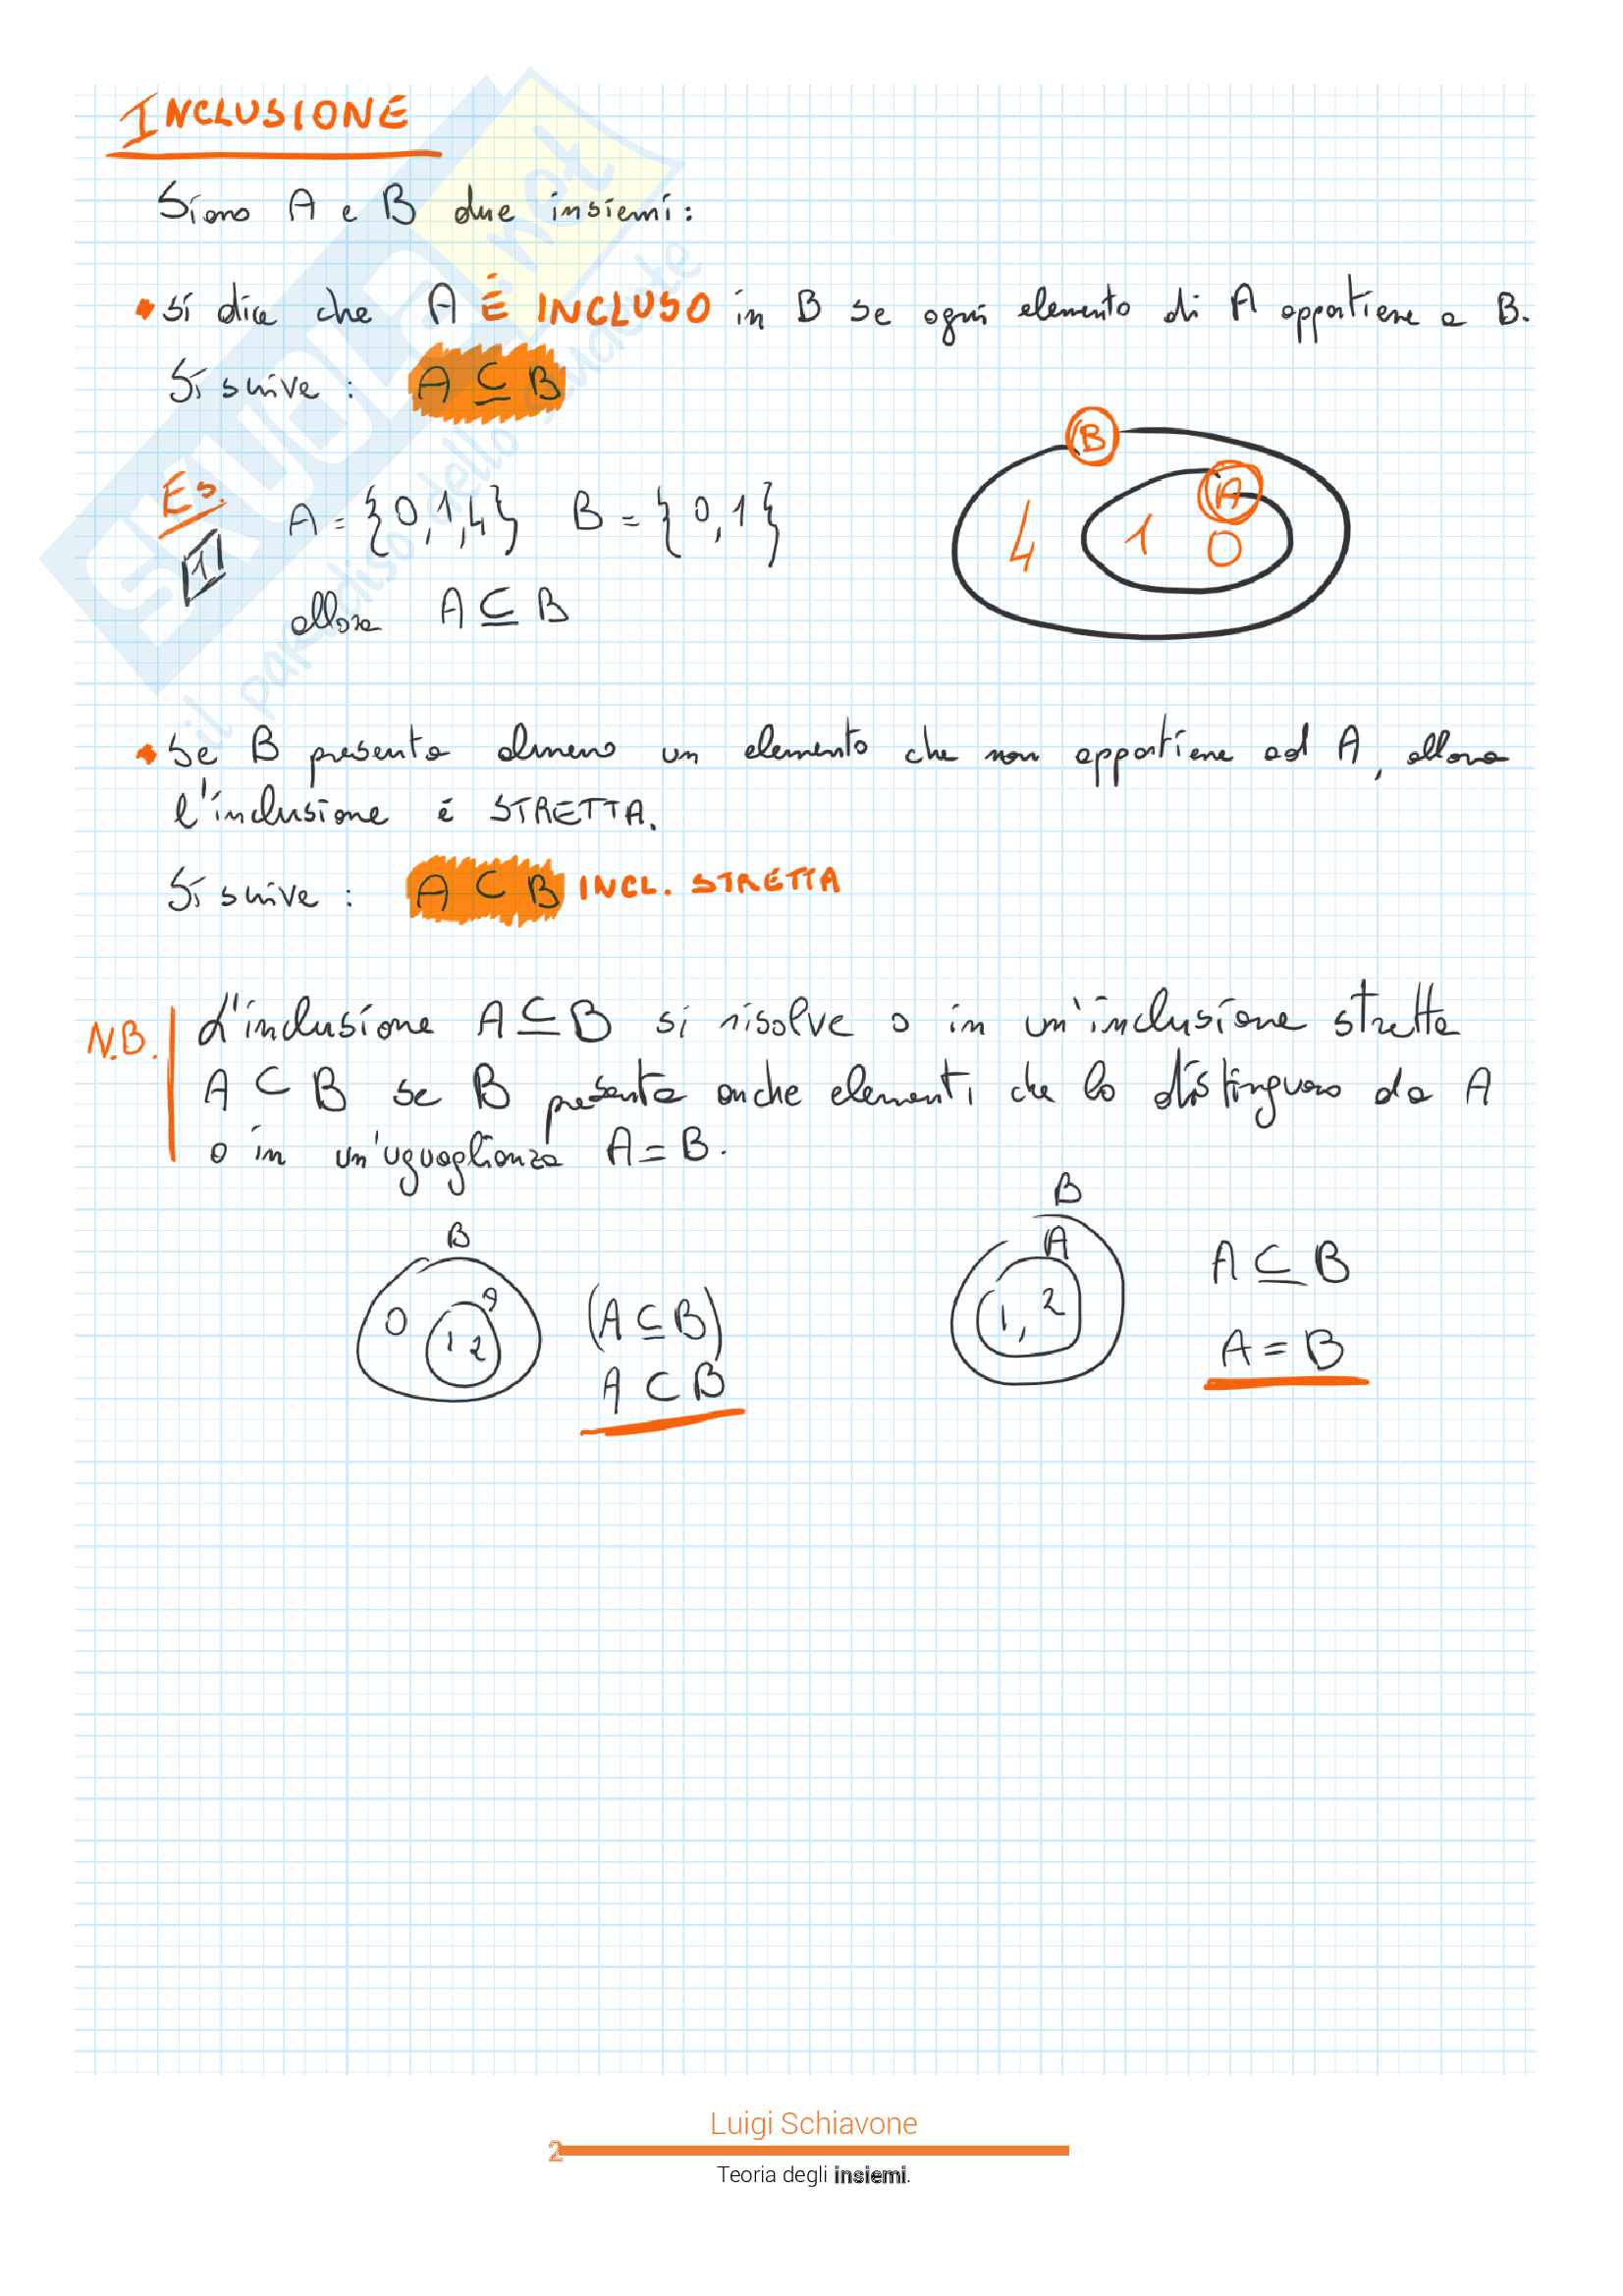 INCLUSIONE
Siano A e B due insiemi:
• si dice che A È INCLUSO in B se ogni elemento di A appartiene a B.
Si scrive : A ⊆ B
B
A
4 1 0
Es.
1
A = {0,1,4} B = {0,1}
allora A ⊆ B
• Se B presenta almeno un elemento che non appartiene ad A, allora
l'inclusione é STRETTA.
Si scrive : A ⊂ B INCL. STRETTA
N.B.
L'inclusione A ⊆ B si risolve o in un'inclusione stretta
A ⊂ B se B presenta anche elementi che lo distinguono da A
o in un'uguaglianza A = B.
B
A
0 1 2
(A ⊆ B)
A ⊂ B
B
A
1, 2
A ⊆ B
A = B
SKUOLA.net
il paradiso dello studente
Luigi Schiavone
2
Teoria degli insiemi.